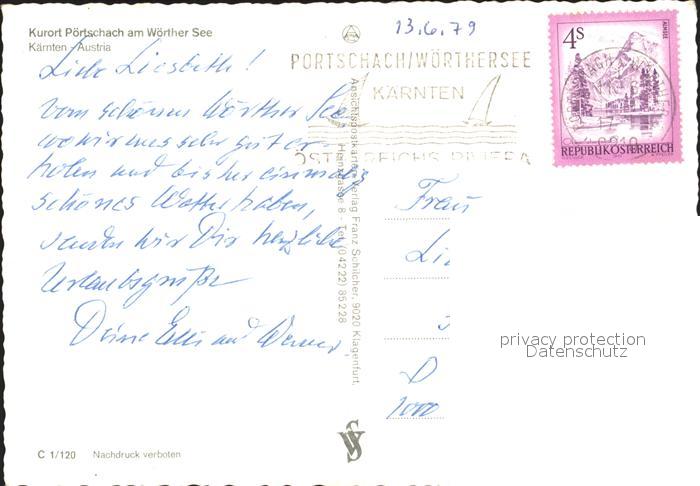 Kurort Pörtschach am Wörther See
Kärnten - Austria
13.6.79
PÖRTSCHACH/WÖRTHERSEE
KÄRNTEN
ÖSTERREICHS RIVIERA
ALMSEE
4S
REPUBLIK ÖSTERREICH
Liebe Liesbeth!
Vom schönen Wörther See,
wo wir uns sehr gut er-
holen und bisher einmalig
schönes Wetter haben,
senden wir Dir herzliche
Urlaubsgrüße
Deine Elli und Werner.
Ansichtspostkarten-Verlag Franz Schilcher, 9020 Klagenfurt,
Heinzelgasse 8 - Tel. (04222) 85 2 28
Frau
Li
D
1000
privacy protection
Datenschutz
C 1/120 Nachdruck verboten